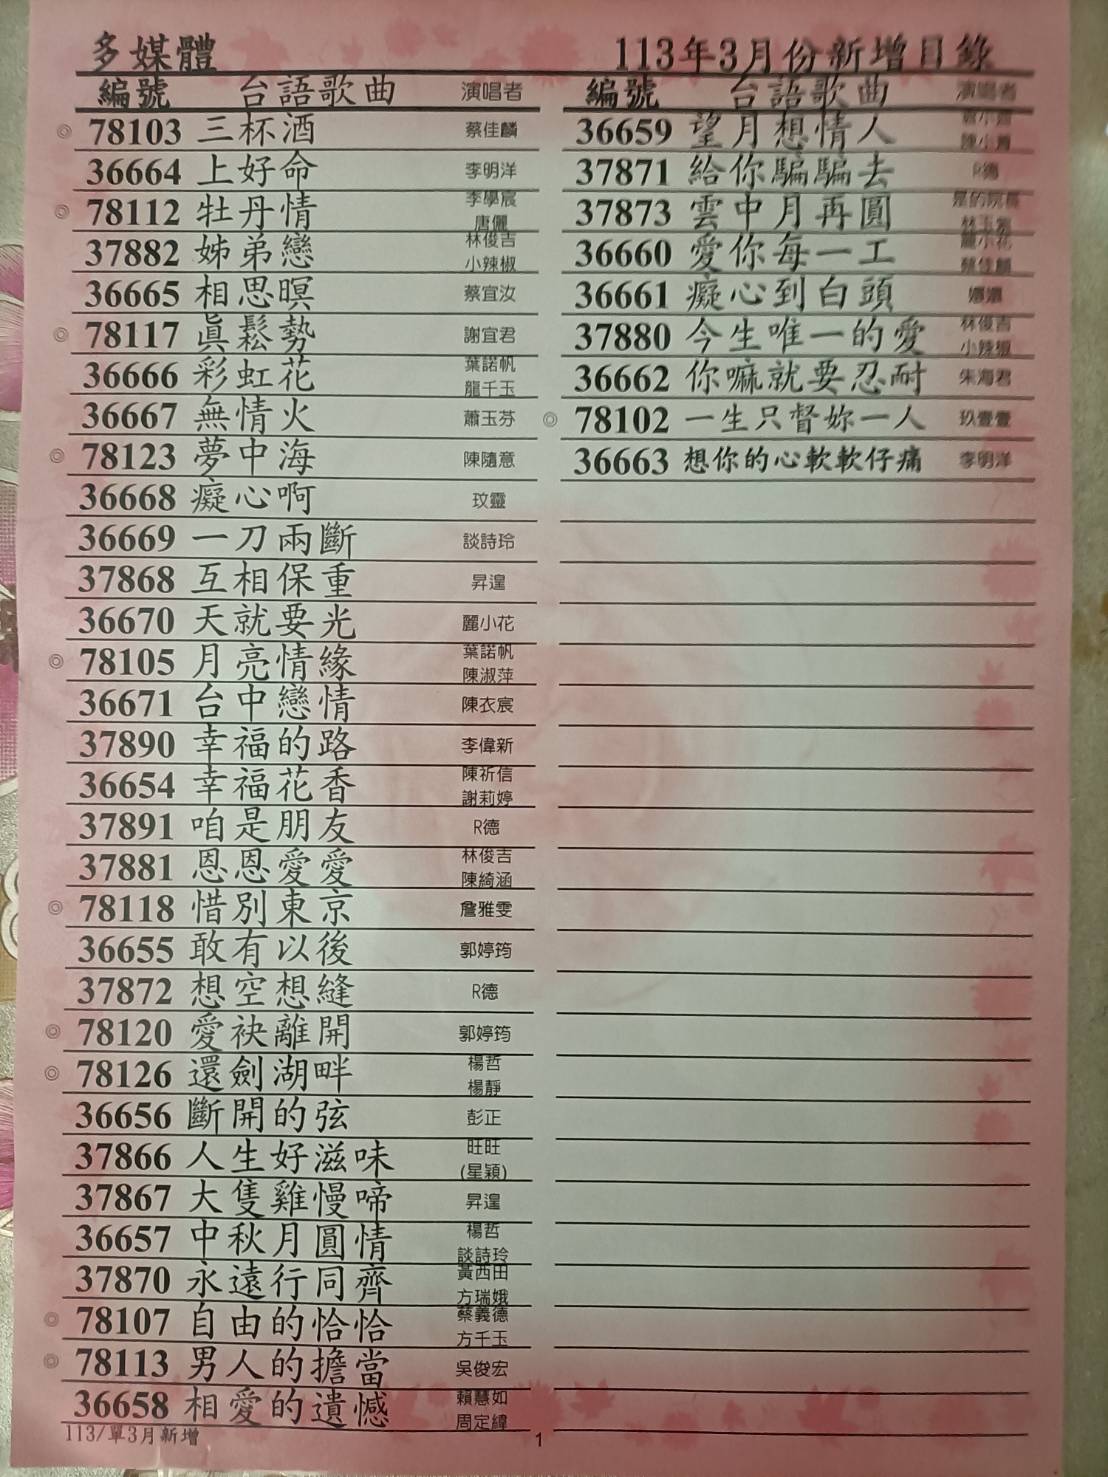 多媒體
113年3月份新增目錄
編號 台語歌曲 演唱者
◎ 78103 三杯酒 蔡佳麟
36664 上好命 李明洋
◎ 78112 牡丹情 李學宸 唐儷
37882 姊弟戀 林俊吉 小辣椒
36665 相思暝 蔡宜汝
◎ 78117 真鬆勢 謝宜君
36666 彩虹花 葉諾帆 龍千玉
36667 無情火 蕭玉芬
◎ 78123 夢中海 陳隨意
36668 癡心啊 玟靈
36669 一刀兩斷 談詩玲
37868 互相保重 昇遑
36670 天就要光 麗小花
◎ 78105 月亮情緣 葉諾帆 陳淑萍
36671 台中戀情 陳衣宸
37890 幸福的路 李偉新
36654 幸福花香 陳祈信 謝莉婷
37891 咱是朋友 R德
37881 恩恩愛愛 林俊吉 陳綺涵
◎ 78118 惜別東京 詹雅雯
36655 敢有以後 郭婷筠
37872 想空想縫 R德
◎ 78120 愛袂離開 郭婷筠
◎ 78126 還劍湖畔 楊哲 楊靜
36656 斷開的弦 彭正
37866 人生好滋味 旺旺 (星穎)
37867 大隻雞慢啼 昇遑
36657 中秋月圓情 楊哲 談詩玲
37870 永遠行同齊 黃西田 方瑞娥
◎ 78107 自由的恰恰 蔡義德 方千玉
◎ 78113 男人的擔當 吳俊宏
36658 相愛的遺憾 賴慧如 周定緯
編號 台語歌曲 演唱者
36659 望月想情人
37871 給你騙騙去 R德
37873 雲中月再圓 是的院長
36660 愛你每一工 麗小花 蔡佳麟
36661 癡心到白頭
37880 今生唯一的愛 林俊吉 小辣椒
36662 你嘛就要忍耐 朱海君
◎ 78102 一生只督妳一人 玖壹壹
36663 想你的心軟軟仔痛 李明洋
113/單3月新增
1